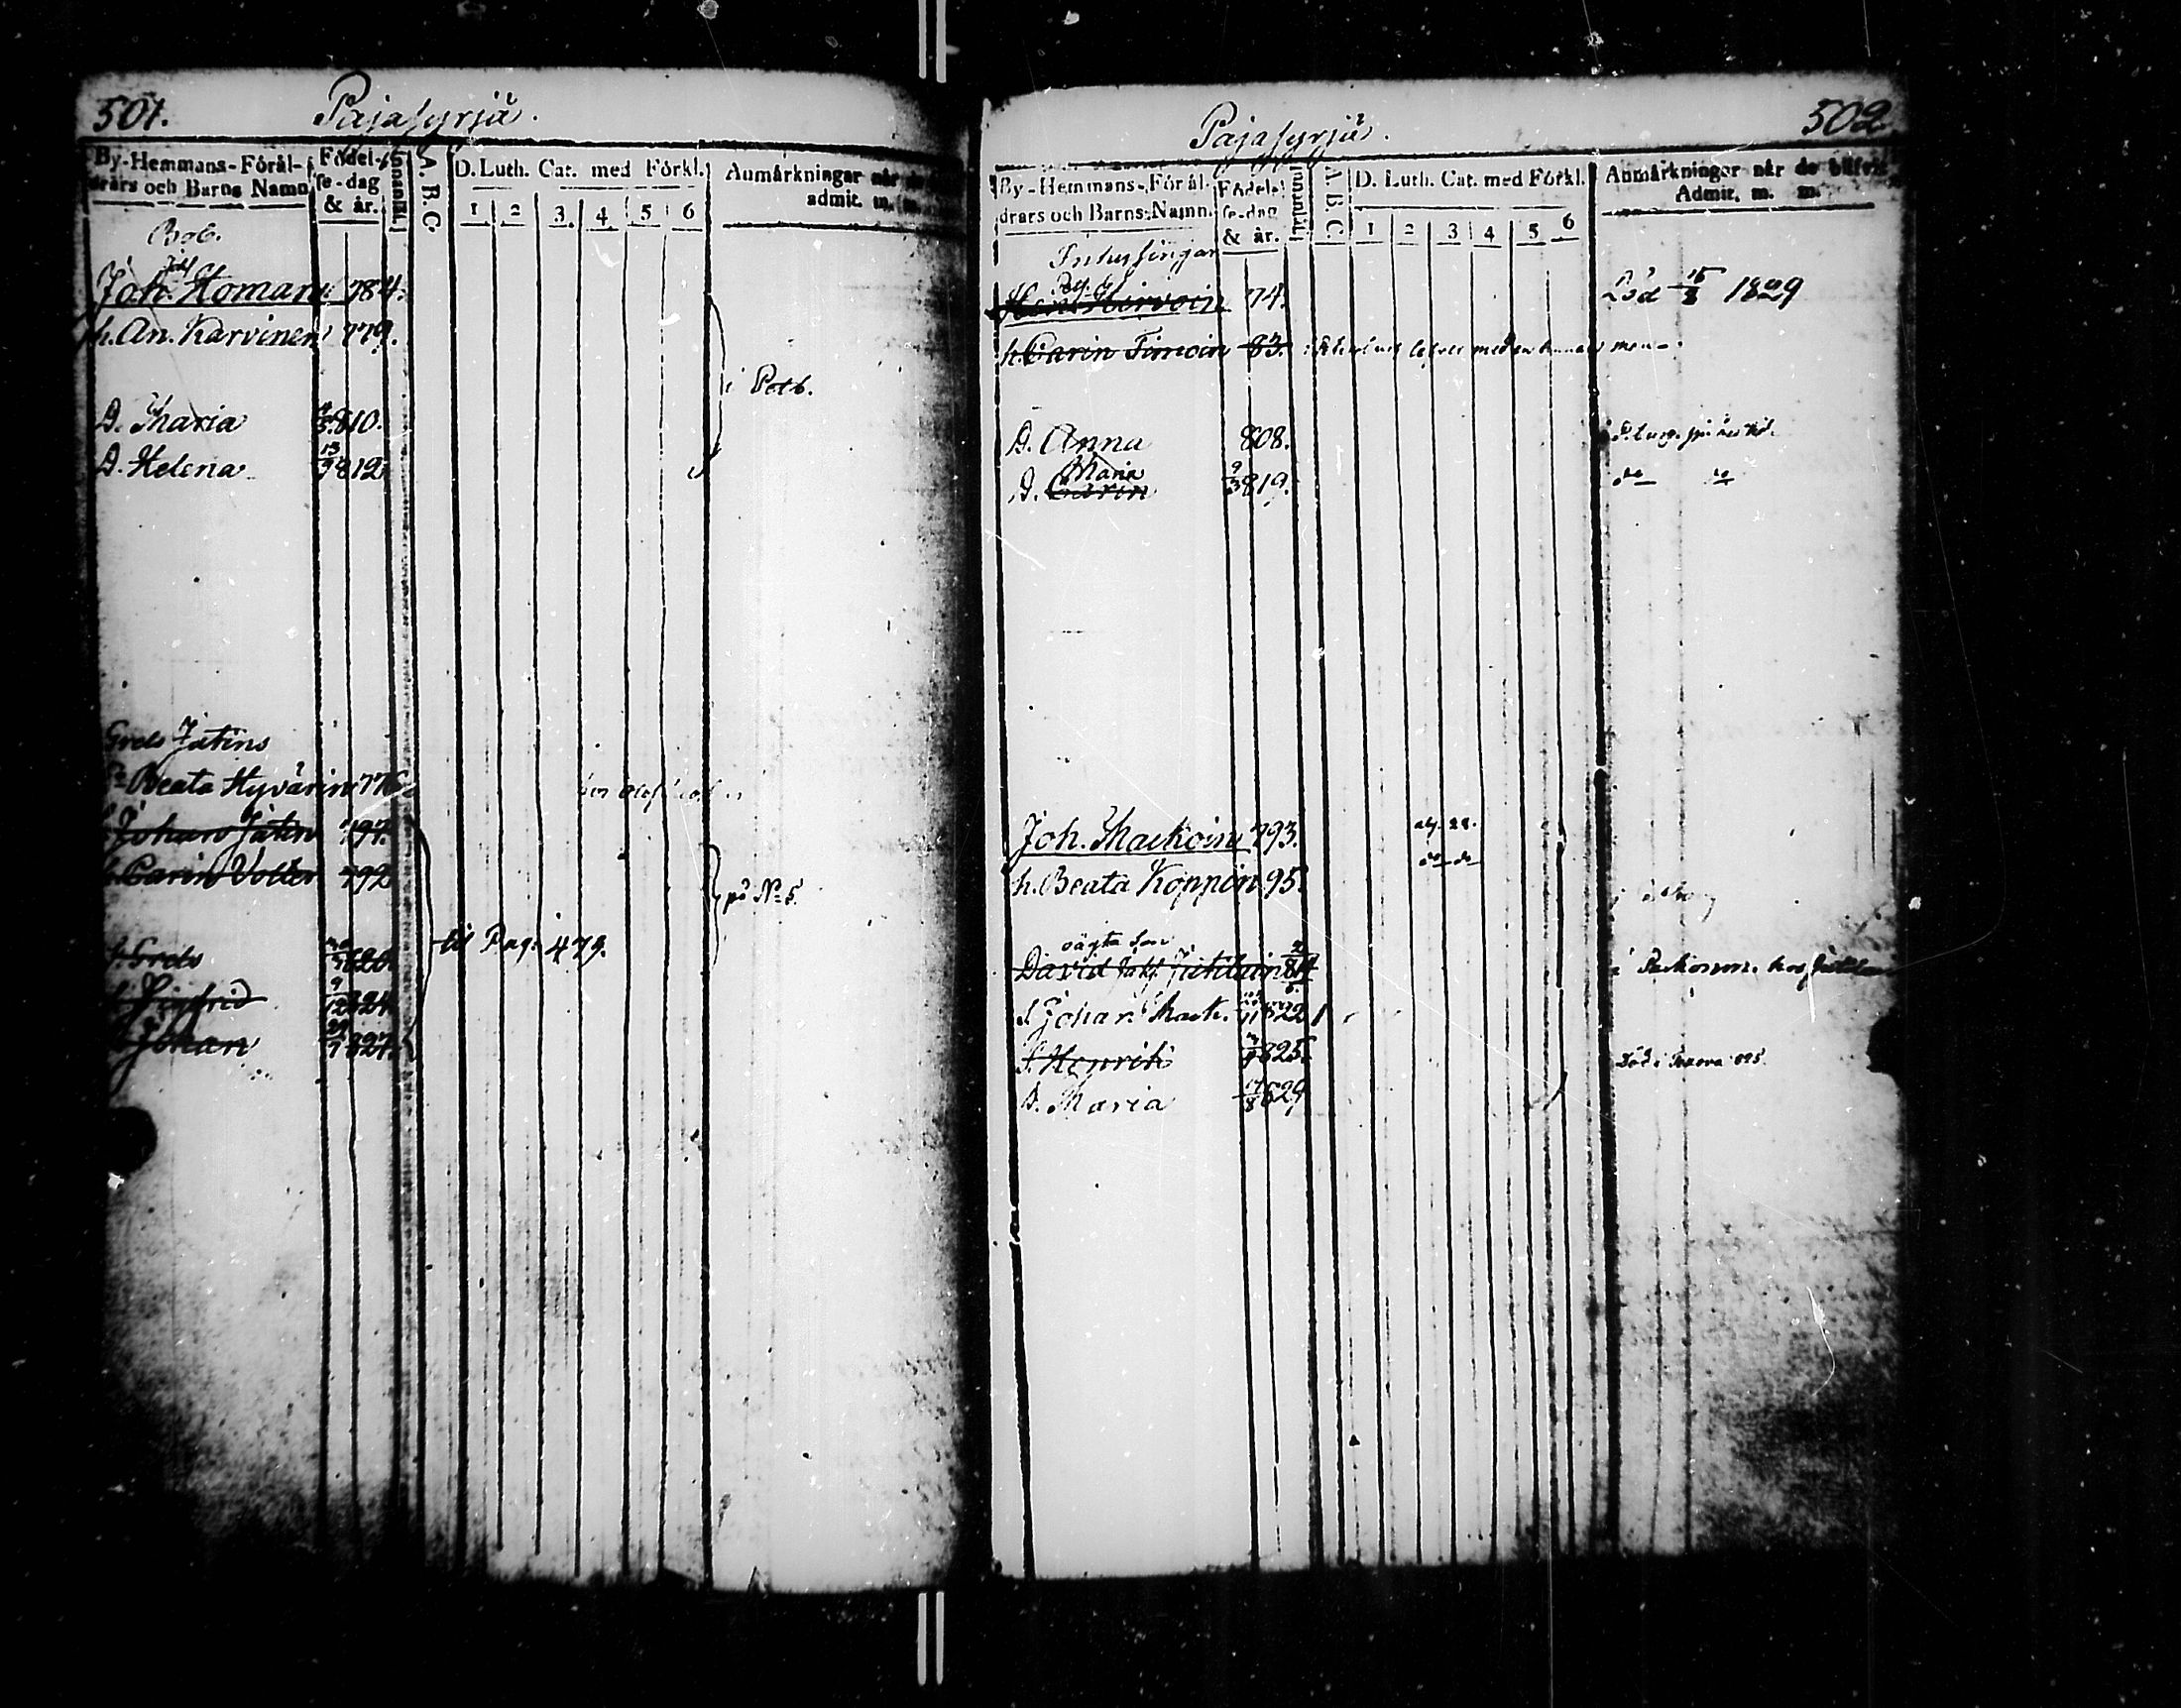 501. Pajasyrjä.
By-Hemmans-Förål-
drars och Barns Namn
Födel-
se-dag
& år.
Innanläs.
A. B. C.
D. Luth. Cat. med Förkl.
1 2 3 4 5 6
Anmärkningar när de
admit. m. m.
Bob.
Joh. Homan 784.
h. An. Karvinen 779.
i Potb.
D. Maria 810.
D. Helena 13/9 812
Grels Jätins
Beata Hyvärin 776
Johan Jätin 797.
h. Carin Volter 792
på No 5.
til Pag: 479.
s. Grels 820.
s. Sigfrid 9/12 824.
s. Johan 29/7 827.
Pajasyrjä. 502
By-Hemmans-Förål-
drars och Barns Namn.
Födel-
se-dag
& år.
A. B. C.
D. Luth. Cat. med Förkl.
1 2 3 4 5 6
Anmärkningar när de blifvit
Admit. m. m.
Inhysingar
Hen. Hirvoin 74. Död 15/8 1829
h. Carin Timoin 83.
D. Anna 808.
Maria
D. Carin 9/3 819. do do
Joh. Mackoin 793. abs. 28.
h. Beata Koppin 95. do do
oägta son
David Jak. Jutilain 2/5 814
S. Johan Mack. 822
S. Henrik 825.
D. Maria 17/8 829